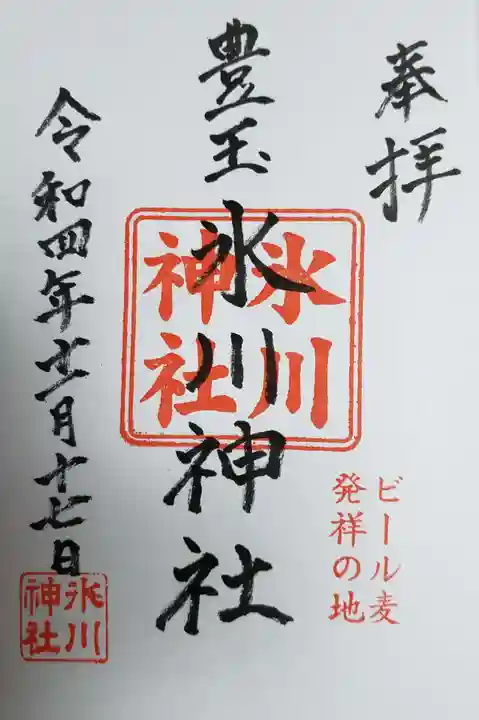 奉拝
豊玉
氷川神社
氷川
神社
ビール麦
発祥の地
令和四年十二月十七日
氷川
神社